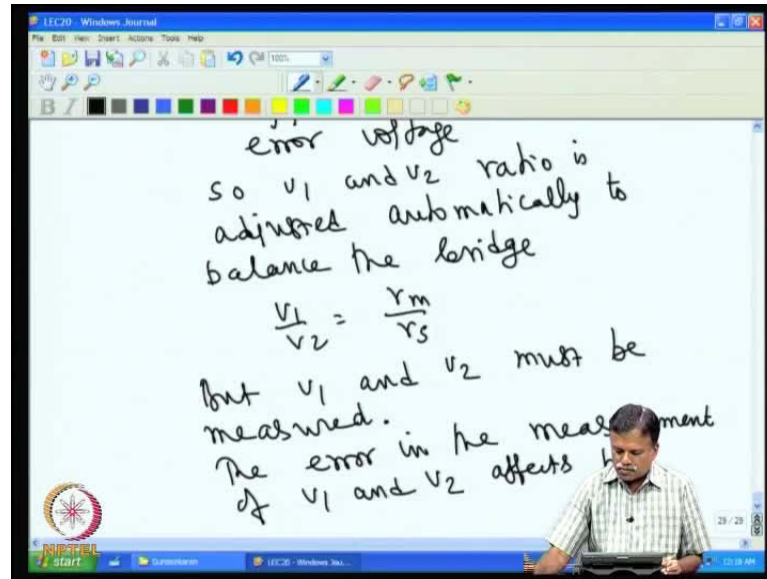 LEC20 - Windows Journal
File Edit View Insert Actions Tools Help
100%
B I
error voltage
so v1 and v2 ratio is
adjusted automatically to
balance the bridge
v1/v2 = rm/rs
But v1 and v2 must be
measured.
The error in the meas ment
of v1 and v2 affects
29 / 29
NPTEL
start
LEC20 - Windows Jou...
12:19 AM